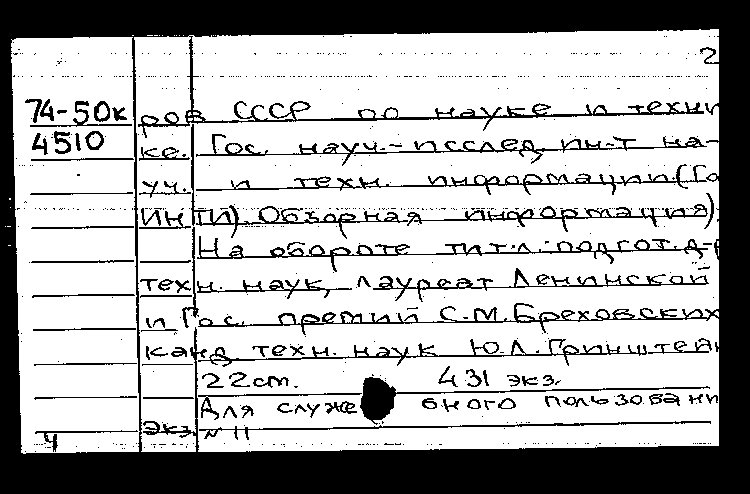 2
74-50к ров СССР по науке и техни
4510 ке. Гос. науч.-исслед. ин-т на-
уч. и техн. информации (Го
ИНТИ). Обзорная информация).
На обороте тит.л.: подгот. д-р
техн. наук, лауреат Ленинской
и Гос. премий С.М. Бреховских
канд. техн. наук Ю.Л. Гринштейн
22 cm. 431 экз.
Для служебного пользовани
Ч экз. № 11